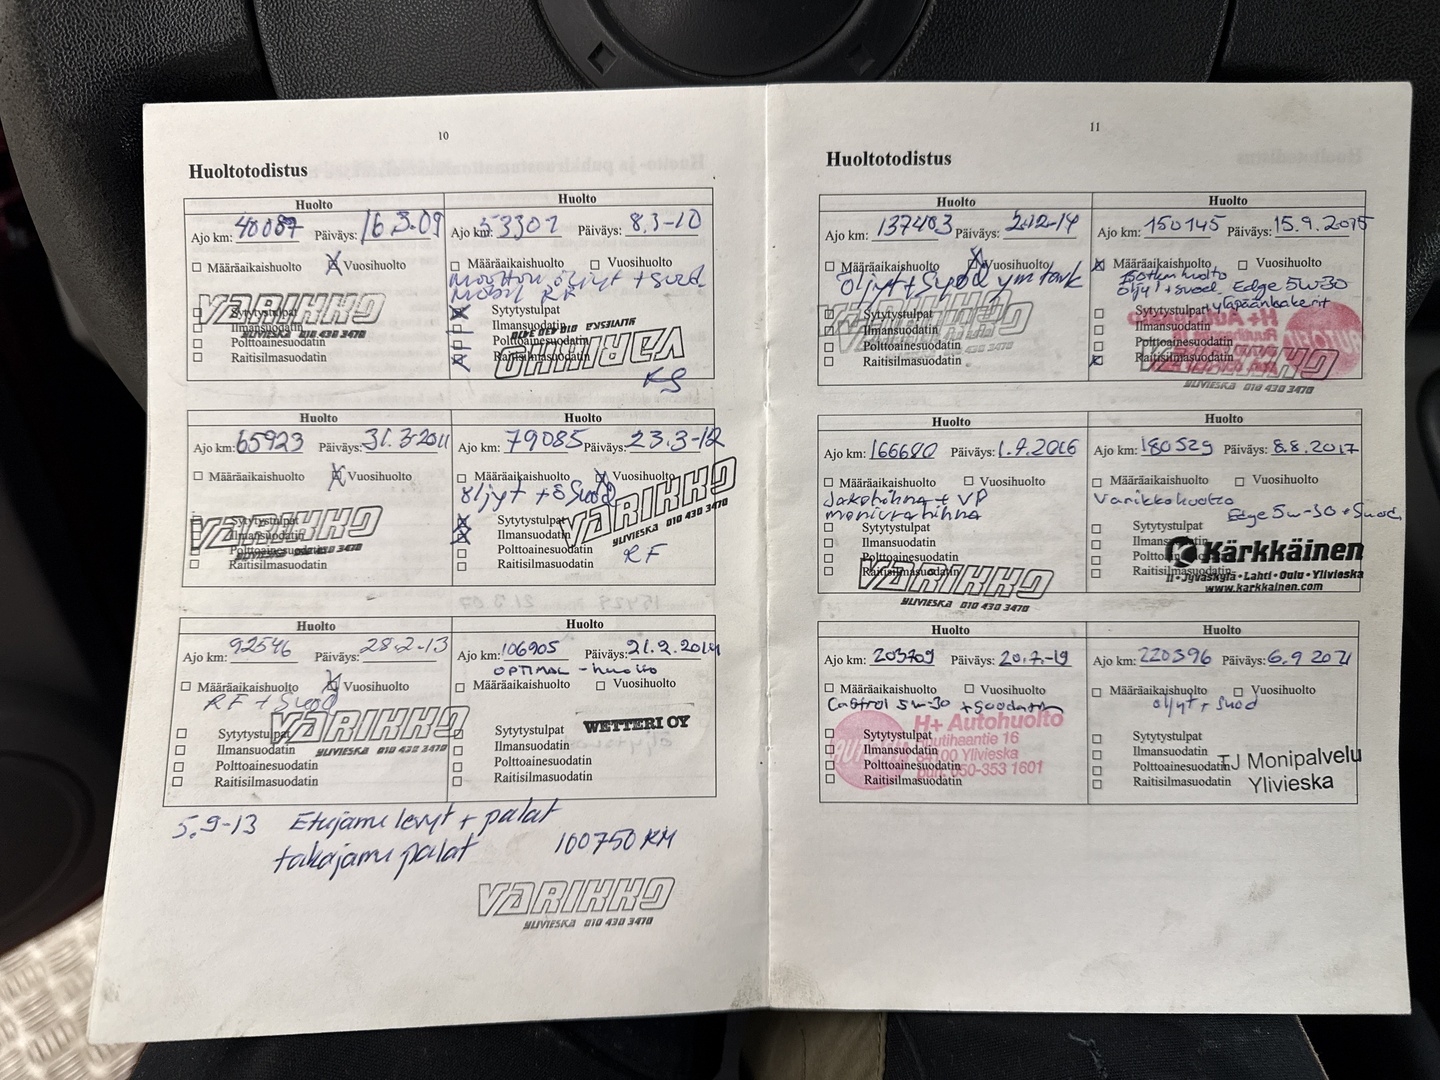 10
Huoltotodistus
Huolto
Ajo km: 40087 Päiväys: 16.3.09
Määräaikaishuolto Vuosihuolto
VARIKKO
YLIVIESKA 010 430 3470
Sytytystulpat
Ilmansuodatin
Polttoainesuodatin
Raitisilmasuodatin
Huolto
Ajo km: 53302 Päiväys: 8.3-10
Määräaikaishuolto Vuosihuolto
Moottori öljyt + suod
Mobil RF
Sytytystulpat
Ilmansuodatin
Polttoainesuodatin
Raitisilmasuodatin
VARIKKO
YLIVIESKA 010 430 3470
KS
Huolto
Ajo km: 65923 Päiväys: 31.3-2011
Määräaikaishuolto Vuosihuolto
Sytytystulpat
Ilmansuodatin
Polttoainesuodatin
Raitisilmasuodatin
VARIKKO
YLIVIESKA 010 430 3470
Huolto
Ajo km: 79085 Päiväys: 23.3-12
Määräaikaishuolto Vuosihuolto
öljyt + Suod
Sytytystulpat
Ilmansuodatin
Polttoainesuodatin
Raitisilmasuodatin
VARIKKO
YLIVIESKA 010 430 3470
RF
Huolto
Ajo km: 92546 Päiväys: 28.2-13
Määräaikaishuolto Vuosihuolto
RF + Suod
Sytytystulpat
Ilmansuodatin
Polttoainesuodatin
Raitisilmasuodatin
VARIKKO
YLIVIESKA 010 430 3470
Huolto
Ajo km: 106905 Päiväys: 21.2.2014
OPTIMAL - huolto
Määräaikaishuolto Vuosihuolto
Sytytystulpat
Ilmansuodatin
Polttoainesuodatin
Raitisilmasuodatin
WETTERI OY
5.9-13 Etujarru levyt + palat
takajarru palat 100750 KM
VARIKKO
YLIVIESKA 010 430 3470
11
Huoltotodistus
Huolto
Ajo km: 137403 Päiväys: 2.12-14
Määräaikaishuolto Vuosihuolto
Öljyt + Suod ym tark
Sytytystulpat
Ilmansuodatin
Polttoainesuodatin
Raitisilmasuodatin
VARIKKO
YLIVIESKA 010 430 3470
Huolto
Ajo km: 150145 Päiväys: 15.9.2015
Määräaikaishuolto Vuosihuolto
öljyt + suod Edge 5w30
Sytytystulpat
Ilmansuodatin
Polttoainesuodatin
Raitisilmasuodatin
VARIKKO
YLIVIESKA 010 430 3470
Huolto
Ajo km: 166680 Päiväys: 1.9.2016
Määräaikaishuolto Vuosihuolto
Jakohihna + VP
moniurahihna
Sytytystulpat
Ilmansuodatin
Polttoainesuodatin
Raitisilmasuodatin
VARIKKO
YLIVIESKA 010 430 3470
Huolto
Ajo km: 180529 Päiväys: 8.8.2017
Määräaikaishuolto Vuosihuolto
Varikkohuolto
Edge 5w-30 + Suod.
Sytytystulpat
Ilmansuodatin
Polttoainesuodatin
Raitisilmasuodatin
Kärkkäinen
Ii • Jyväskylä • Lahti • Oulu • Ylivieska
www.karkkainen.com
Huolto
Ajo km: 203709 Päiväys: 20.7.-19
Määräaikaishuolto Vuosihuolto
Castrol 5w-30 + Suodatin
Sytytystulpat
Ilmansuodatin
Polttoainesuodatin
Raitisilmasuodatin
H+ Autohuolto
16
84100 Ylivieska
puh. 050-353 1601
Huolto
Ajo km: 220396 Päiväys: 6.9 2021
Määräaikaishuolto Vuosihuolto
öljyt + suod
Sytytystulpat
Ilmansuodatin
Polttoainesuodatin
Raitisilmasuodatin
TJ Monipalvelu
Ylivieska